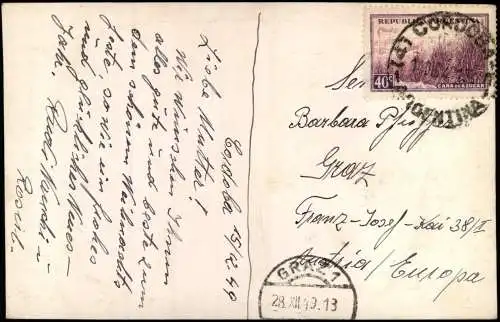 Cordoba 15/12 49
Liebe Mutter!
Wir wünschen Ihnen
alles gute und beste zum
dem schönem Weihnachts
feste, so wie ein frohes
und glückliches Neues-
Jahr.
Rosl.
REPUBLICA ARGENTINA
40c
CAÑA DE AZUCAR
(41) CORDOBA
ARGENTINA
Barbara
Graz
Franz-Josef-Kai 38/I
Austria/Europa
GRAZ 1
28.XII.49.13